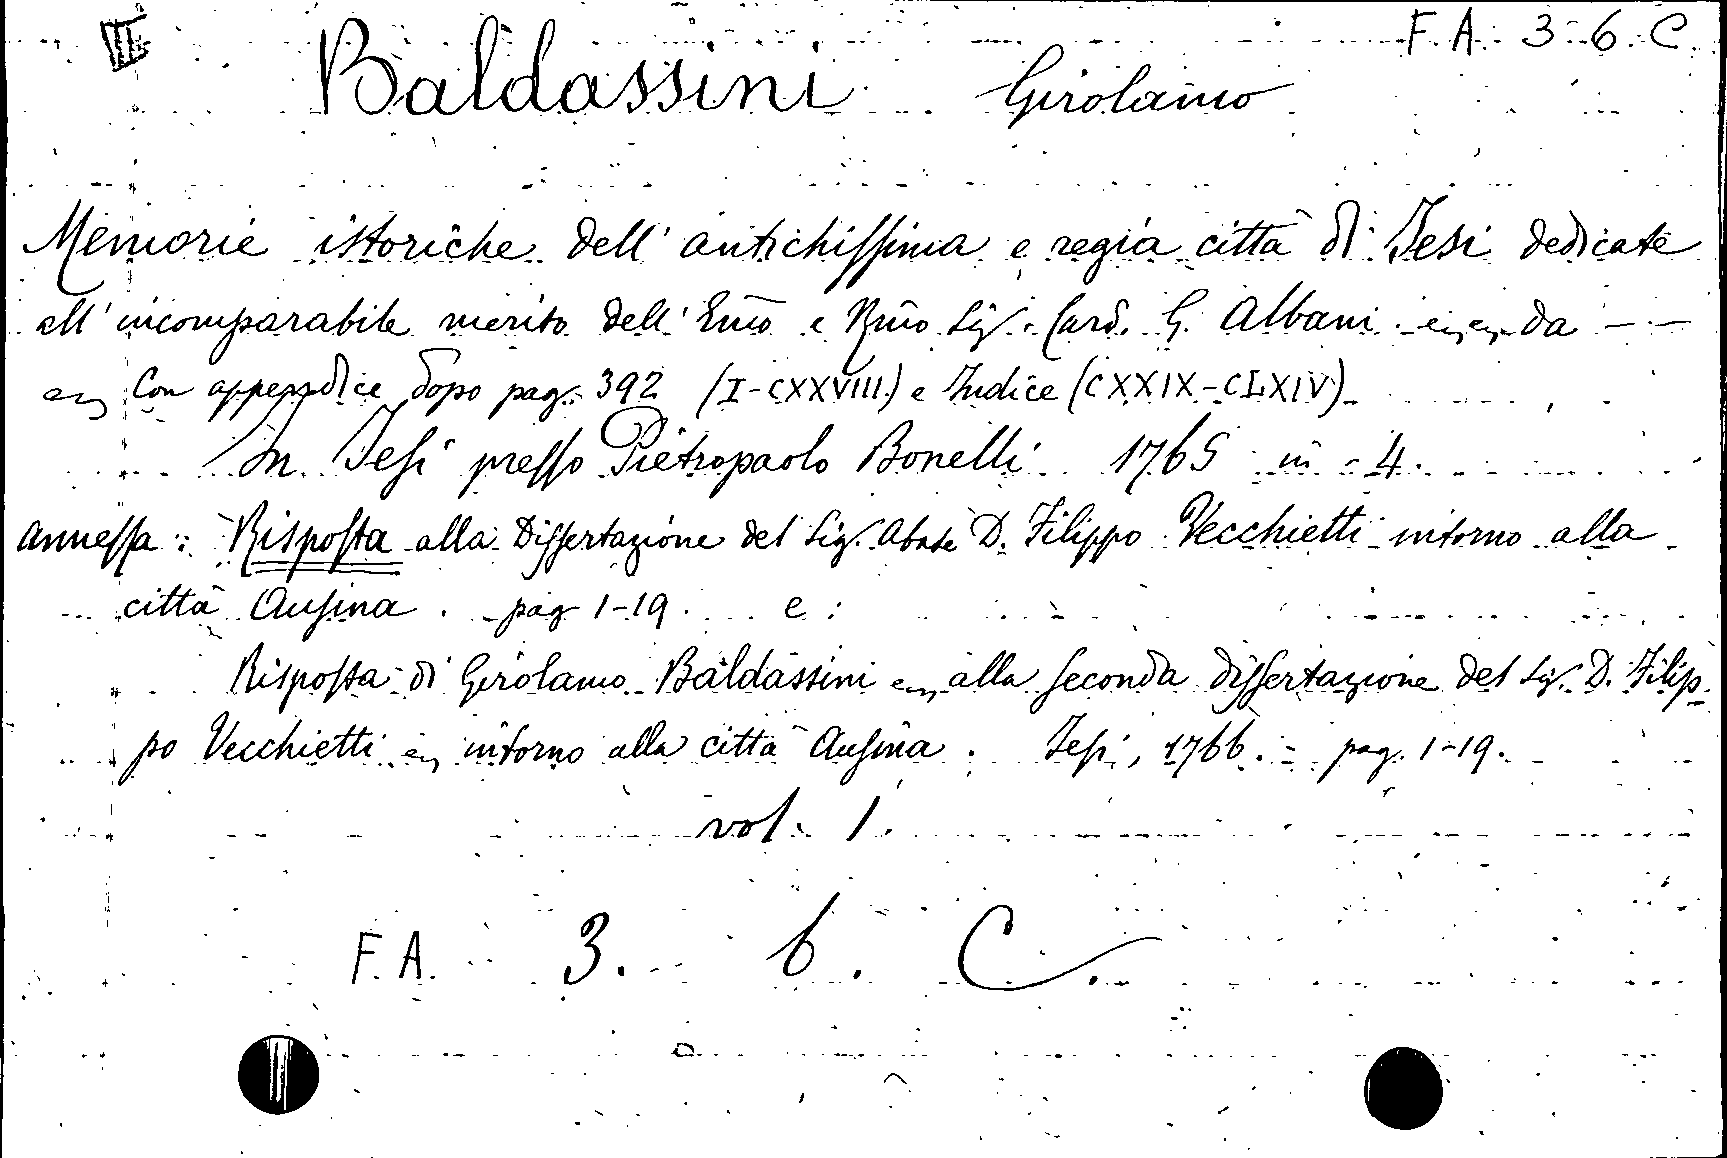 F. A. 3-6. C.
Baldassini Girolamo
Memorie istoriche dell' antichissima e regia città di Jesi dedicate
all' incomparabile merito dell' Emo e Rmo Sig. Card. G. Albani da - -
Con appendice dopo pag. 392 (I-CXXVIII) e Indice (CXXIX-CLXIV)
In Jesi presso Pietropaolo Bonelli 1765 in-4.
annessa: Risposta alla Dissertazione del Sig. Abate D. Filippo Vecchietti intorno alla
città Ausina. pag 1-19. e:
Risposta di Girolamo Baldassini alla seconda dissertazione del Sig. D. Filip-
po Vecchietti intorno alla città Ausina. Jesi, 1766. - pag. 1-19.
vol. 1.
F. A. 3. 6. C.